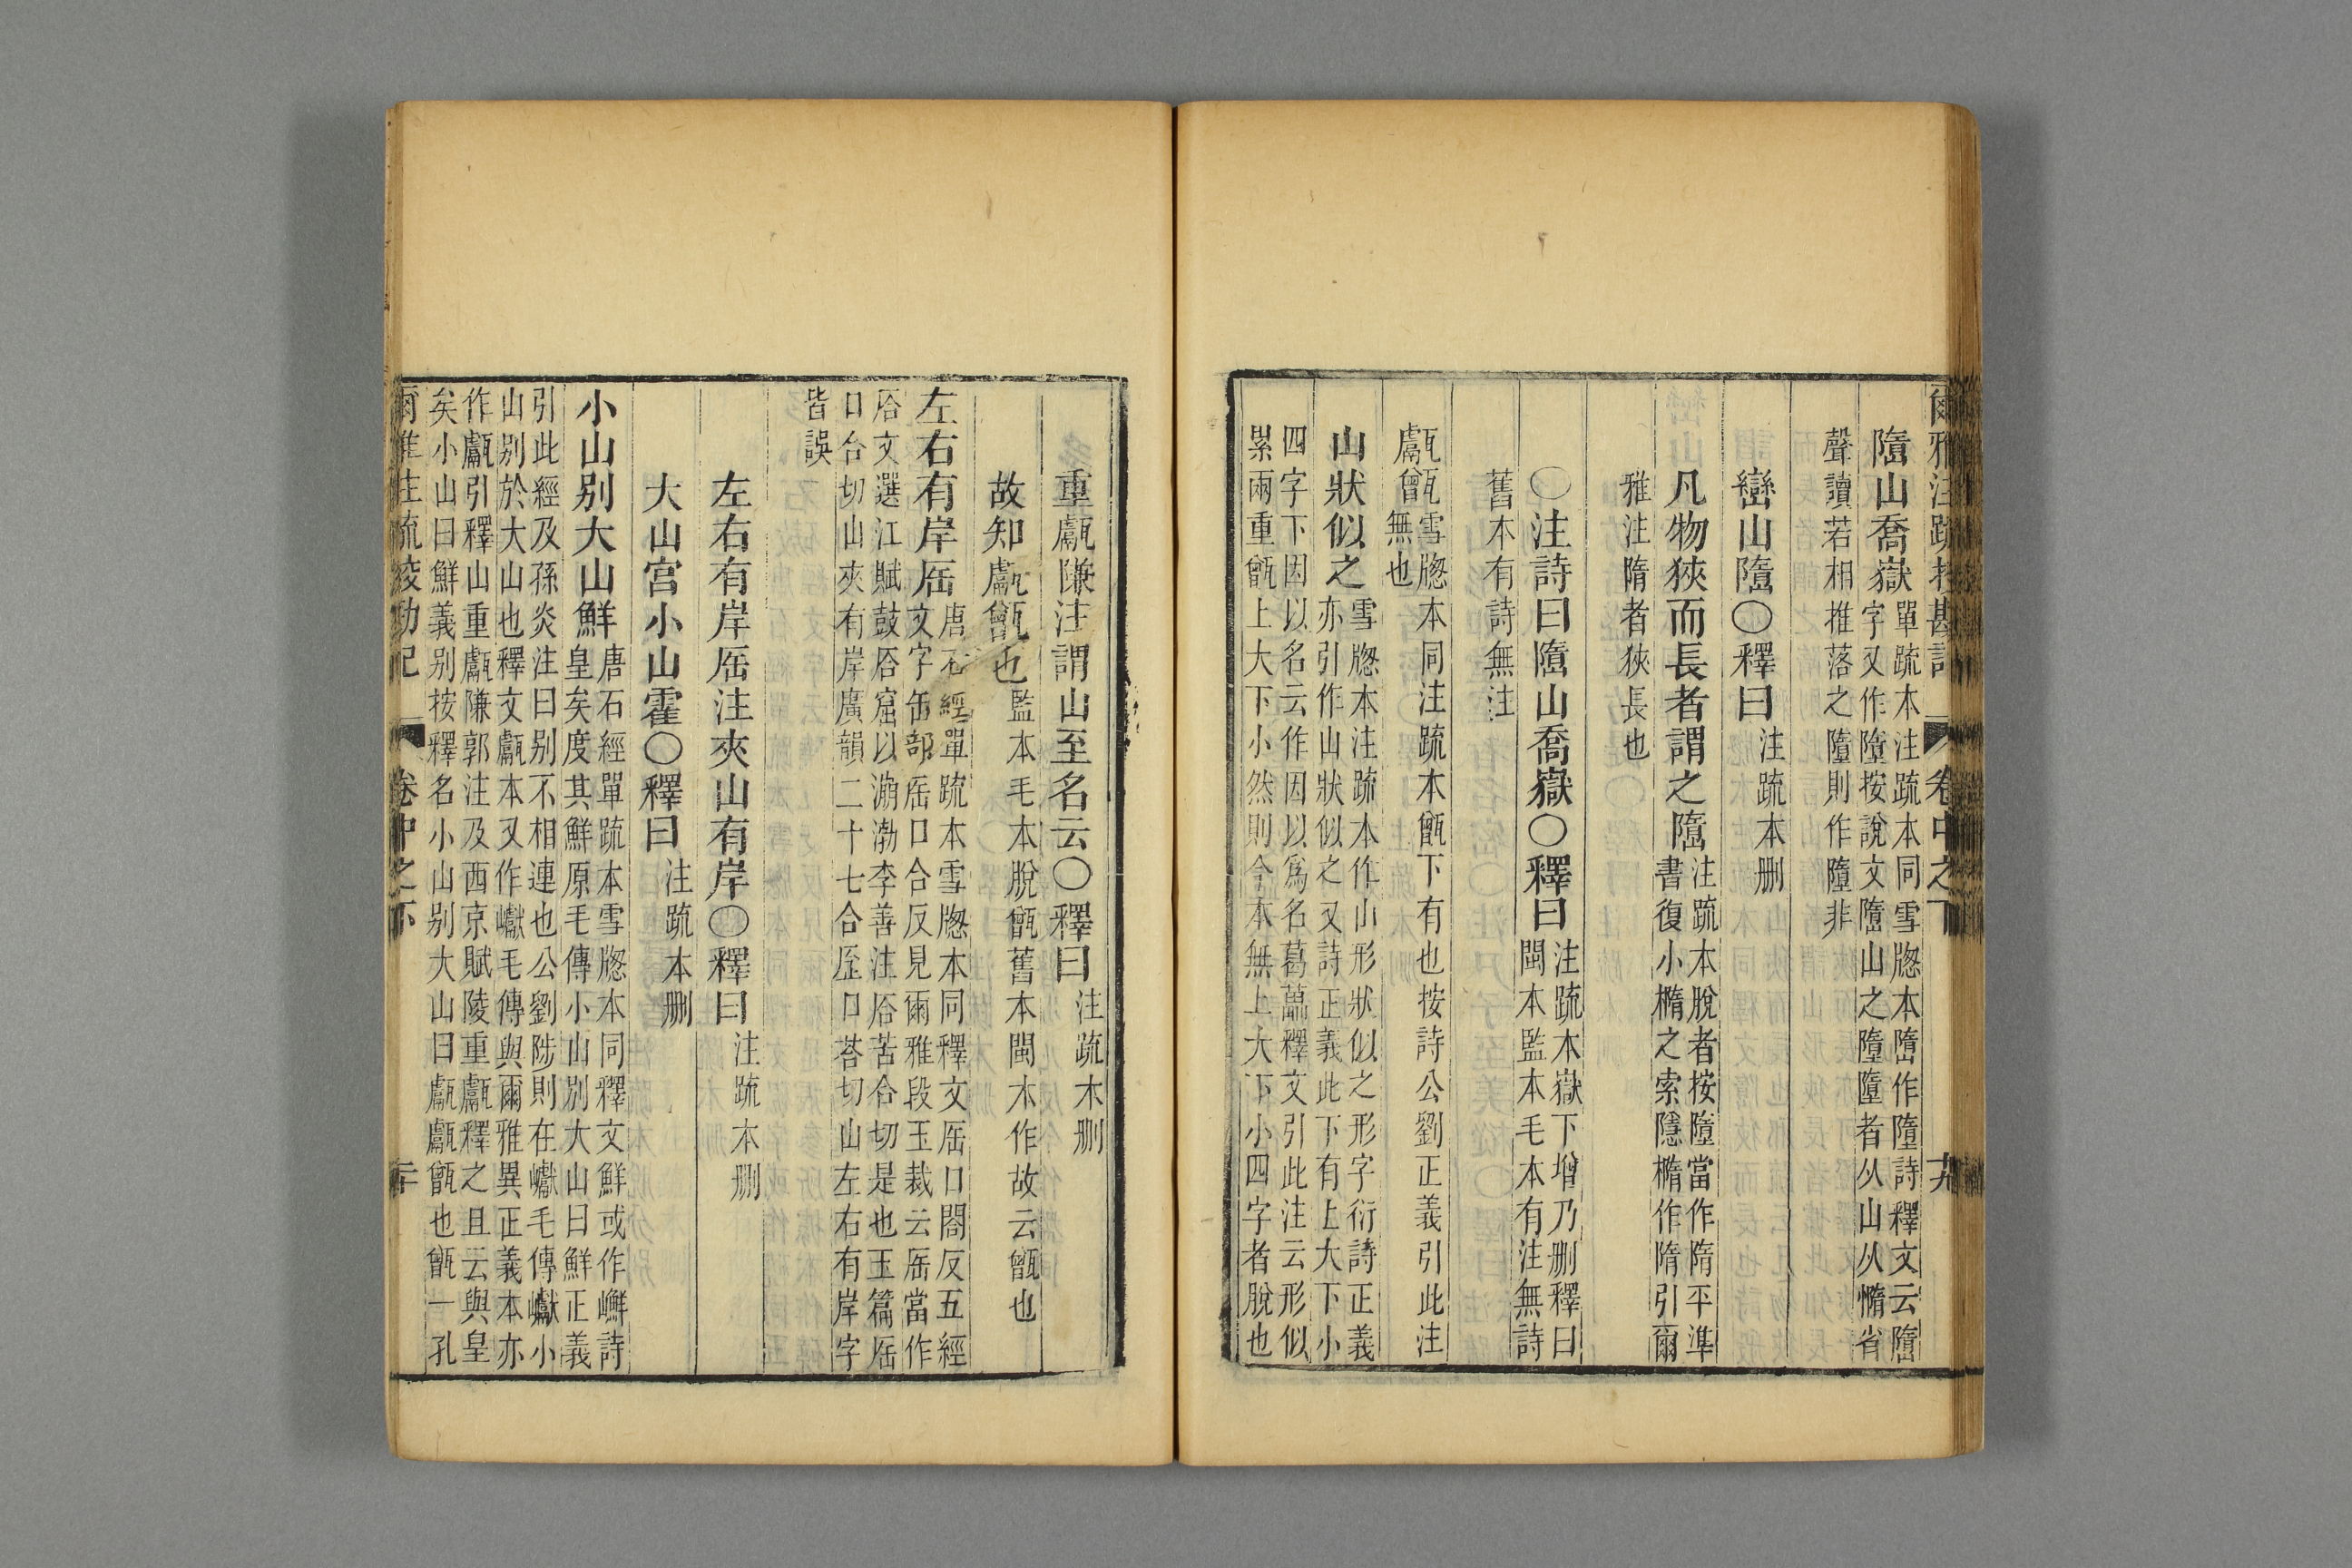 爾雅注疏挍勘記 卷中之下 十九
隓山喬嶽單疏本注疏本同雪牕本隓作墮詩釋文云隓
字又作墮按說文隓山之墮墮者从山从憜省
聲讀若相推落之墮則作墮非
巒山隓○釋曰注疏本刪
凡物狹而長者謂之隓注疏本脫者按墮當作隋平準
書復小橢之索隱橢作隋引爾
雅注隋者狹長也
○注詩曰隓山喬嶽○釋曰注疏本嶽下增乃刪釋曰
閩本監本毛本有注無詩
舊本有詩無注
甗甑雪牕本同注疏本甑下有也按詩公劉正義引此注
無也
山狀似之雪牕本注疏本作山形狀似之形字衍詩正義
亦引作山狀似之又詩正義此下有上大下小
四字下因以名云作因以爲名葛藟釋文引此注云形似
累兩重甑上大下小然則今本無上大下小四字者脫也
重甗隒注謂山至名云○釋曰注疏本刪
故知甗甑也監本毛本脫甑舊本閩本作故云甑也
左右有岸厒唐石經單疏本雪牕本同釋文厒口閤反五經
文字缶部厒口合反見爾雅段玉裁云厒當作
㕉文選江賦鼓㕉窟以漰渤李善注㕉苦合切是也玉篇厒
口合切山夾有岸廣韻二十七合㕎口荅切山左右有岸字
皆誤
左右有岸厒注夾山有岸○釋曰注疏本刪
大山宮小山霍○釋曰注疏本刪
小山别大山鮮唐石經單疏本雪牕本同釋文鮮或作嶰詩
皇矣度其鮮原毛傳小山别大山曰鮮正義
引此經及孫炎注曰别不相連也公劉陟則在巘毛傳巘小
山别於大山也釋文甗本又作巘毛傳與爾雅異正義本亦
作甗引釋山重甗隒郭注及西京賦陵重甗釋之且云與皇
矣小山曰鮮義别按釋名小山别大山曰甗甗甑也甑一孔
爾雅注疏挍勘記 卷中之下 二十